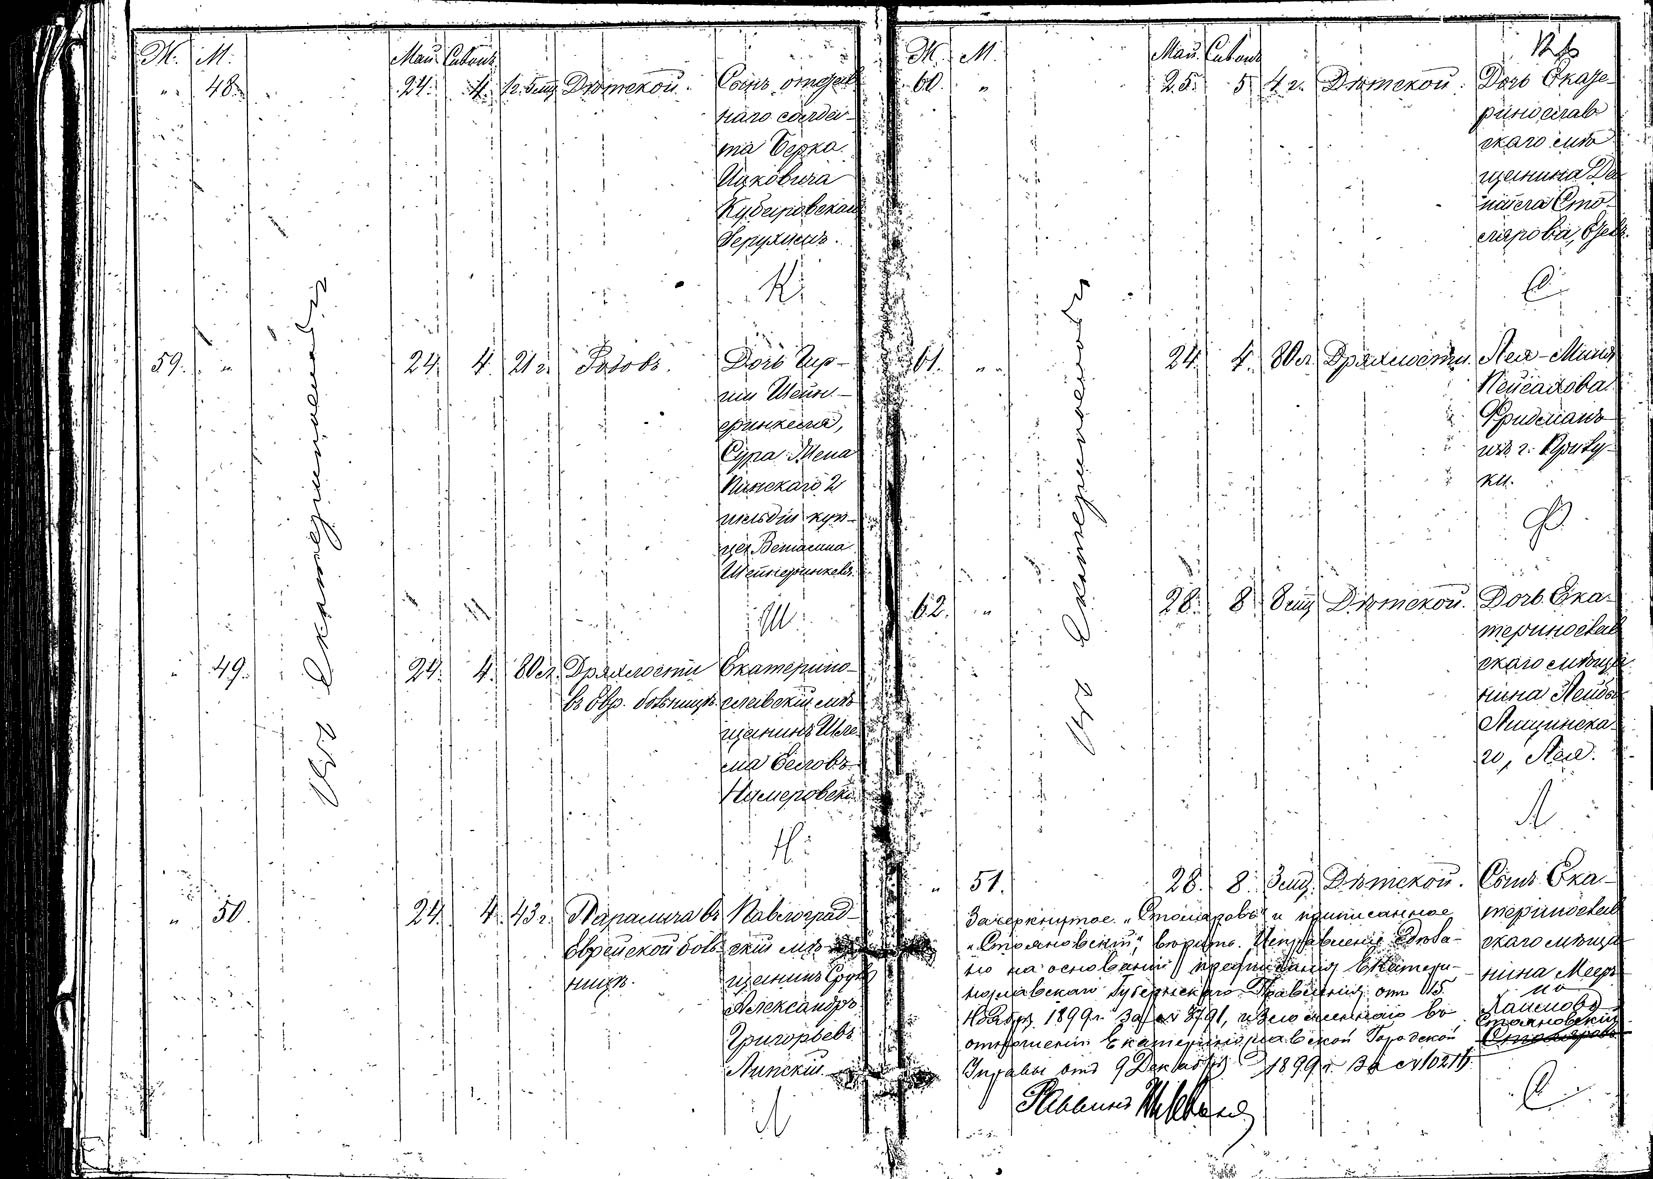 Ж. М. Май Сивонъ
„ 48. 24. 4 1г. 5мц Дѣтской. Сынъ отстав-
наго солда-
та Берка
Ицковича
Кубаровскаго
К
Въ Екатеринославѣ
59. „ 24 4. 21 г. Родовъ. Дочь Гир-
ши Шейн-
финкеля,
Сура Жена
Пинскаго 2
гильдіи куп-
ца Вениамина
Шейнфинкеля.
Ш
„ 49. 24. 4. 80 л. Дряхлости Екатерино-
въ Евр. больницѣ. славскій мѣ-
щанинъ Шле-
ма
Нимеровскі
Н.
„ 50. 24. 4. 43 г. Паралича въ Павлоград-
Еврейской боль- скій мѣ-
ницѣ. щанинъ Сруль
Александръ
Григорьевъ
Липскій.
Л
Ж. М. Май. Сивонъ
60. „ 25. 5 4 г. Дѣтской. Дочь Екате-
ринослав
скаго мѣ
щанина Да
ніила Сто-
лярова,
С
Въ Екатеринославѣ
61. „ 24. 4. 80 л. Дряхлости. Лея-Миня
Пейсахова
Фридманъ
изъ г. Прилу-
ки.
Ф
62. „ 28. 8 8 мц Дѣтской. Дочь Ека-
теринослав
скаго мѣща
нина Лейбы
Лищинска-
го, Лея.
Л
„ 51. 28. 8. 3 мц. Дѣтской. Сынъ Ека-
теринослав
скаго мѣща
нина Мееръ
Хаимовъ
Стояновский
Столяровъ
С
Зачеркнутое „Столяровъ“ и приписанное
„Стояновский“ вѣрить. Исправленіе сдѣла-
но на основаніи предписанія Екатери-
нославскаго Губернскаго Правленія от 15
Ноября 1899 г. за № 8791, изложеннаго въ
отношеніи Екатеринославской Городской
Управы отъ 9 Декабря 1899 г. За №
Раввинъ